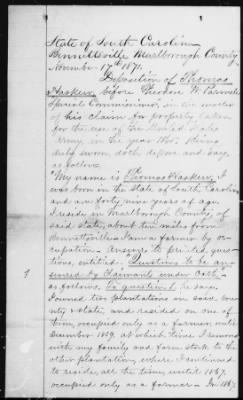 State of South Carolina
Bennettsville, Marlborough County,
November 17th 1871.
Deposition of Thomas
Haskew before Theodore W. Parmele
Special Commissioner, in the matter
of his claim for property taken
for the use of the United States
Army in the year 1865. Being
duly sworn, doth depose and say
as follows
"My name is Thomas Haskew, I
was born in the State of South Carolina
and am forty nine years of age
I reside in Marlborough County, of
said state, about ten miles from
Bennettsville & am a farmer by oc-
cupation. Answer to printed ques-
tions, entitled. "Questions to be an-
swered by Claimants under Oath"
as follows. To question 1 he says.
I owned two plantations in said cou-
nty & state, and resided on one of
them, occupied only as a farmer, until
December 1859, at which time I removed
with my family and farm stock to the
other plantation, where I continued
to reside, all the time, until 1867.
occupied only as a farmer. In 1867